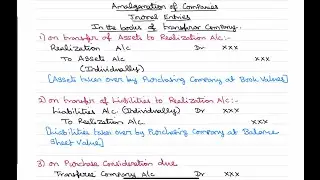 Amalgamation of Companies
Journal Entries
In the books of transferor Company.
1) on transfer of Assets to Realization A/c :-
Realization A/c Dr xxx
To Assets A/c xxx
(Individually)
[Assets taken over by Purchasing Company at Book Values]
2) on transfer of Liabilities to Realization A/c :-
Liabilities A/c (Individually) Dr xxx
To Realization A/c. xxx
[Liabilities taken over by Purchasing Company at Balance
Sheet Value]
3) on Purchase Consideration due
Transferee Company A/c Dr xxx